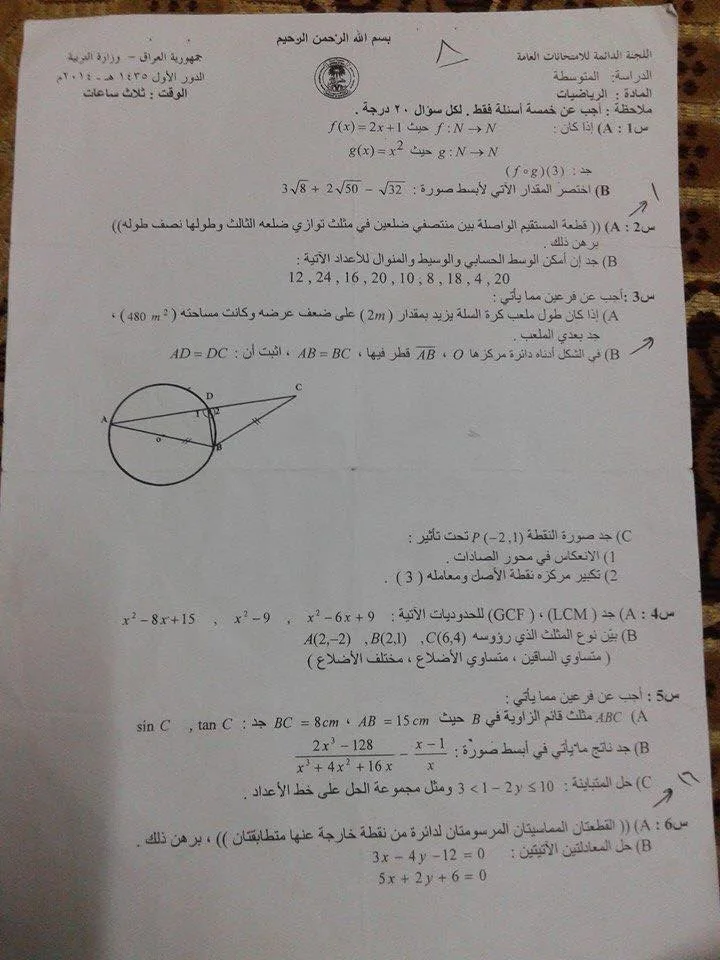 بسم الله الرحمن الرحيم
اللجنة الدائمة للامتحانات العامة
جمهورية العراق - وزارة التربية
الدراسة: المتوسطة
الدور الأول ١٤٣٥ هـ - ٢٠١٤م
المادة : الرياضيات
الوقت : ثلاث ساعات
ملاحظة : أجب عن خمسة أسئلة فقط . لكل سؤال ٢٠ درجة .
س1 : A) إذا كان : f : N → N حيث f(x) = 2x + 1
g : N → N حيث g(x) = x²
جد : (f ∘ g)(3)
B) اختصر المقدار الآتي لأبسط صورة : 3√8 + 2√50 − √32
س2 : A) (( قطعة المستقيم الواصلة بين منتصفي ضلعين في مثلث توازي ضلعه الثالث وطولها نصف طوله))
برهن ذلك .
B) جد إن أمكن الوسط الحسابي والوسيط والمنوال للأعداد الآتية :
12 , 24 , 16 , 20 , 10 , 8 , 18 , 4 , 20
س3 : أجب عن فرعين مما يأتي :
A) إذا كان طول ملعب كرة السلة يزيد بمقدار (2m) على ضعف عرضه وكانت مساحته (480 m²) ،
جد بعدي الملعب .
B) في الشكل أدناه دائرة مركزها O ، AB قطر فيها ، AB = BC ، اثبت أن : AD = DC
A
B
C
D
o
1
2
C) جد صورة النقطة P (−2,1) تحت تأثير :
1) الانعكاس في محور الصادات .
2) تكبير مركزه نقطة الأصل ومعامله ( 3 ) .
س4 : A) جد ( LCM ) ، ( GCF ) للحدوديات الآتية : x² − 6x + 9 , x² − 9 , x² − 8x + 15
B) بيّن نوع المثلث الذي رؤوسه A(2,−2) , B(2,1) , C(6,4)
( متساوي الساقين ، متساوي الأضلاع ، مختلف الأضلاع )
س5 : أجب عن فرعين مما يأتي :
A) ABC مثلث قائم الزاوية في B حيث AB = 15 cm ، BC = 8cm جد : sin C , tan C
B) جد ناتج ما يأتي في أبسط صورة : (2x³ − 128)/(x³ + 4x² + 16x) − (x − 1)/x
C) حل المتباينة : 3 < 1 − 2y ≤ 10 ومثل مجموعة الحل على خط الأعداد .
س6 : A) (( القطعتان المماسيتان المرسومتان لدائرة من نقطة خارجة عنها متطابقتان )) ، برهن ذلك .
B) حل المعادلتين الآتيتين : 3x − 4y − 12 = 0
5x + 2y + 6 = 0